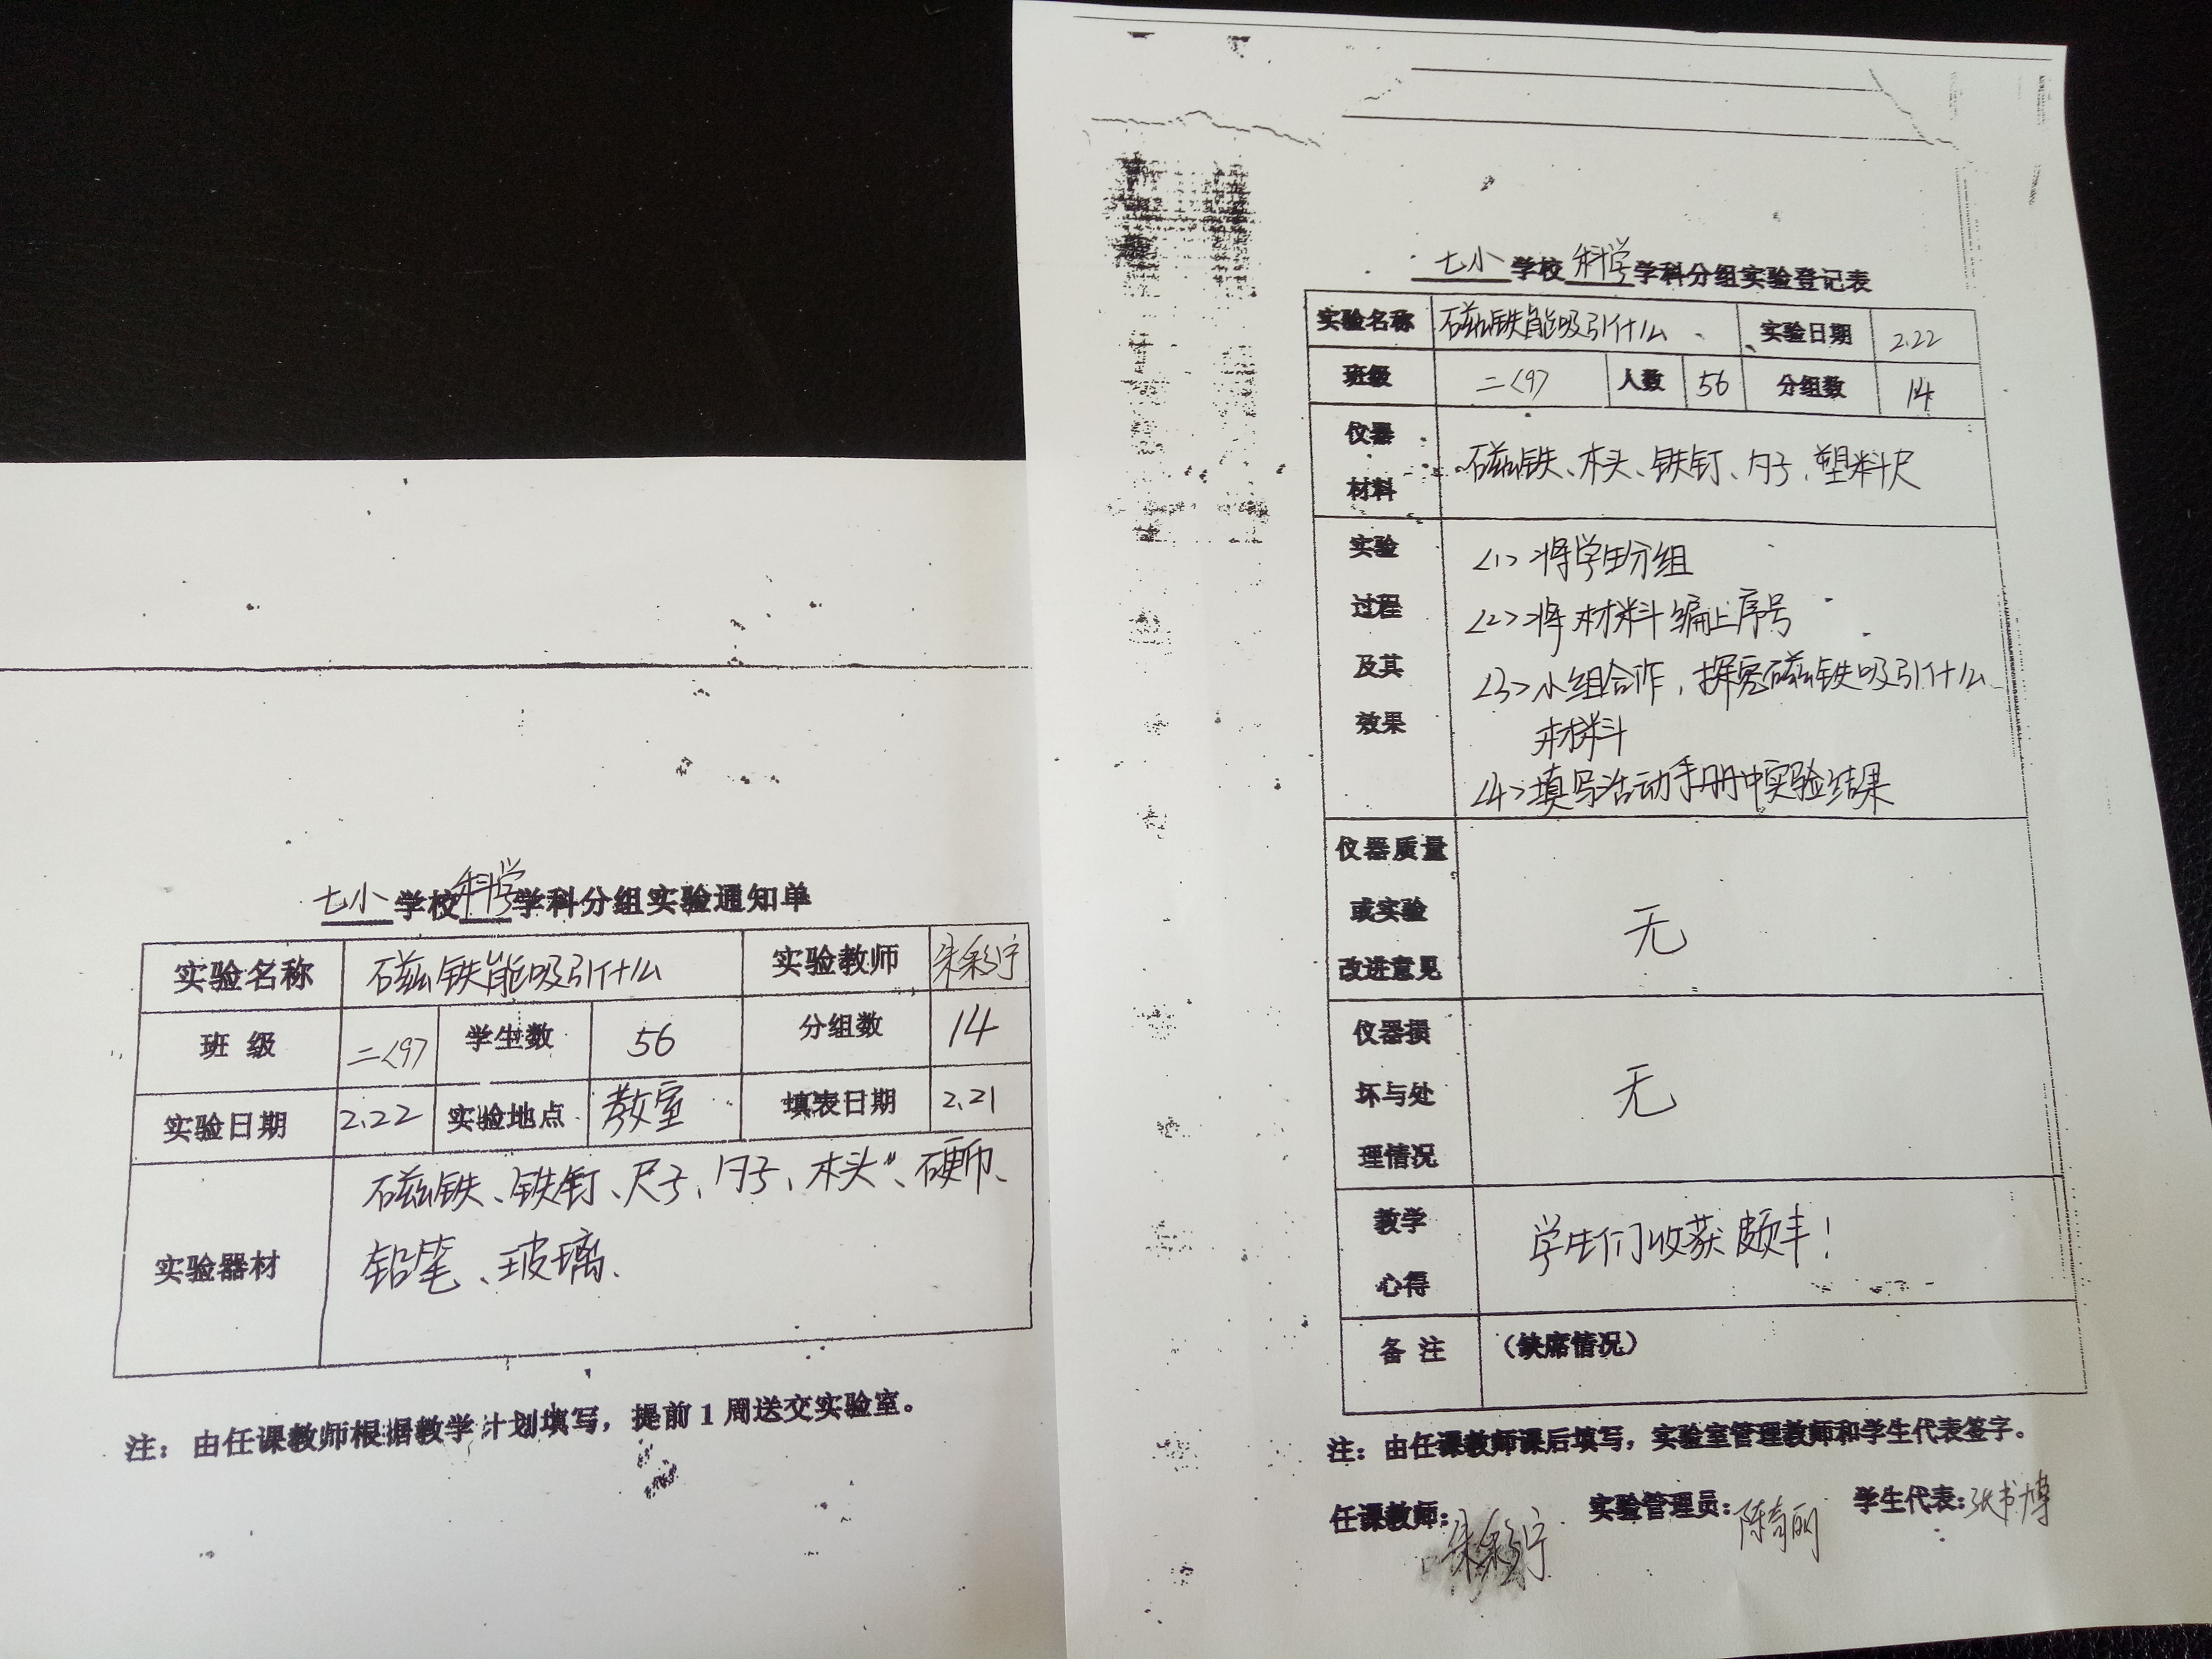 七小学校科学学科分组实验通知单
实验名称 磁铁能吸引什么 实验教师 朱彩宁
班 级 二<9> 学生数 56 分组数 14
实验日期 2.22 实验地点 教室 填表日期 2.21
实验器材 磁铁、铁钉、尺子、夹子、木头、硬币、
铅笔、玻璃、
注：由任课教师根据教学计划填写，提前1周送交实验室。
七小学校科学学科分组实验登记表
实验名称 磁铁能吸引什么 实验日期 2.22
班级 二<9> 人数 56 分组数 14
仪器
材料
磁铁、木头、铁钉、夹子、塑料尺
实验
过程
及其
效果
<1>将学生分组
<2>将材料编上序号
<3>小组合作，探究磁铁吸引什么
材料
<4>填写活动手册中实验结果
仪器质量
或实验
改进意见
无
仪器损
坏与处
理情况
无
教学
心得
学生们收获颇丰！
备 注 （缺席情况）
注：由任课教师课后填写，实验室管理教师和学生代表签字。
任课教师：朱彩宁 实验管理员：陈育丽 学生代表：张书博